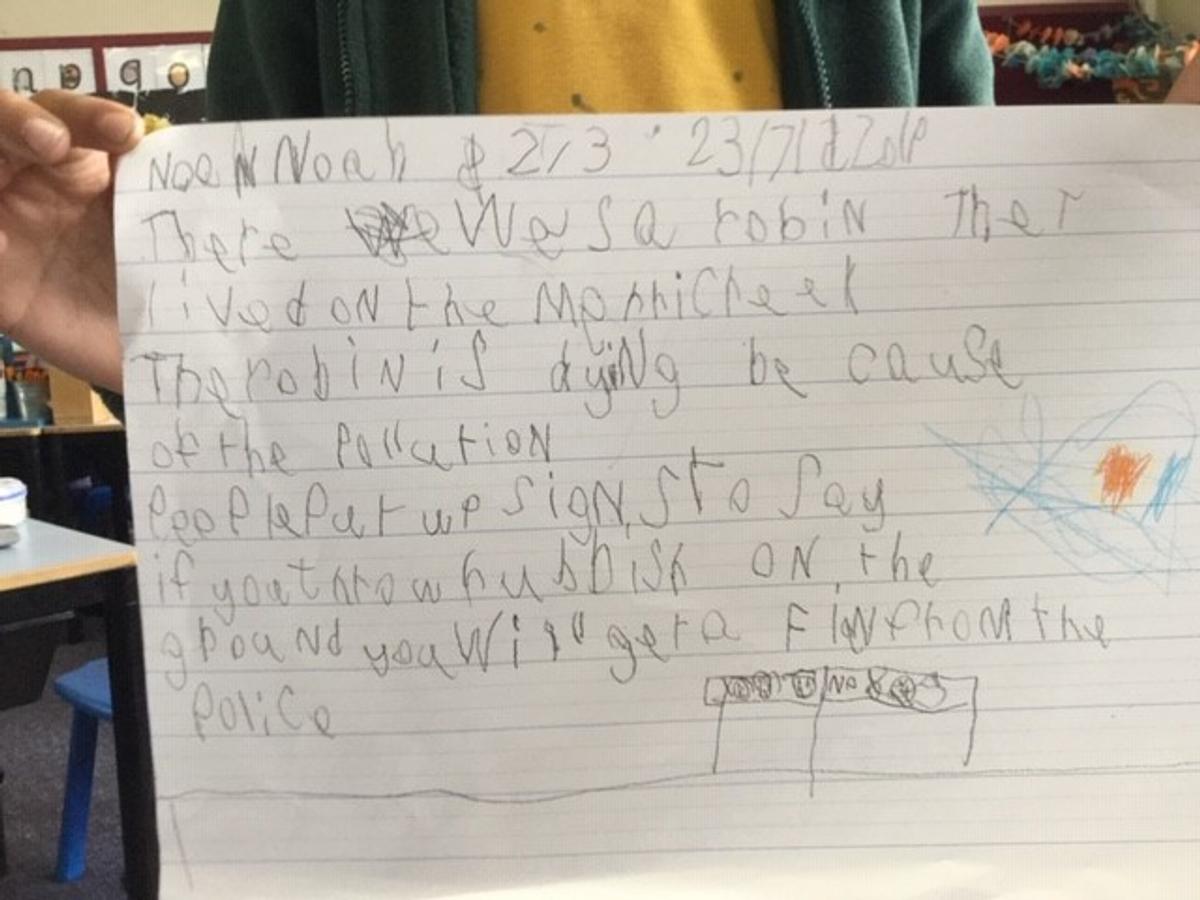 n p g o
Noah Noah 2T3 23/7/
There Was a robin That
lived on the Merri Creek
The robin is dying be cause
of the Pollution
People Put up signs to say
if you throw rubbish on the
ground you will get a Fin from the
Police
No